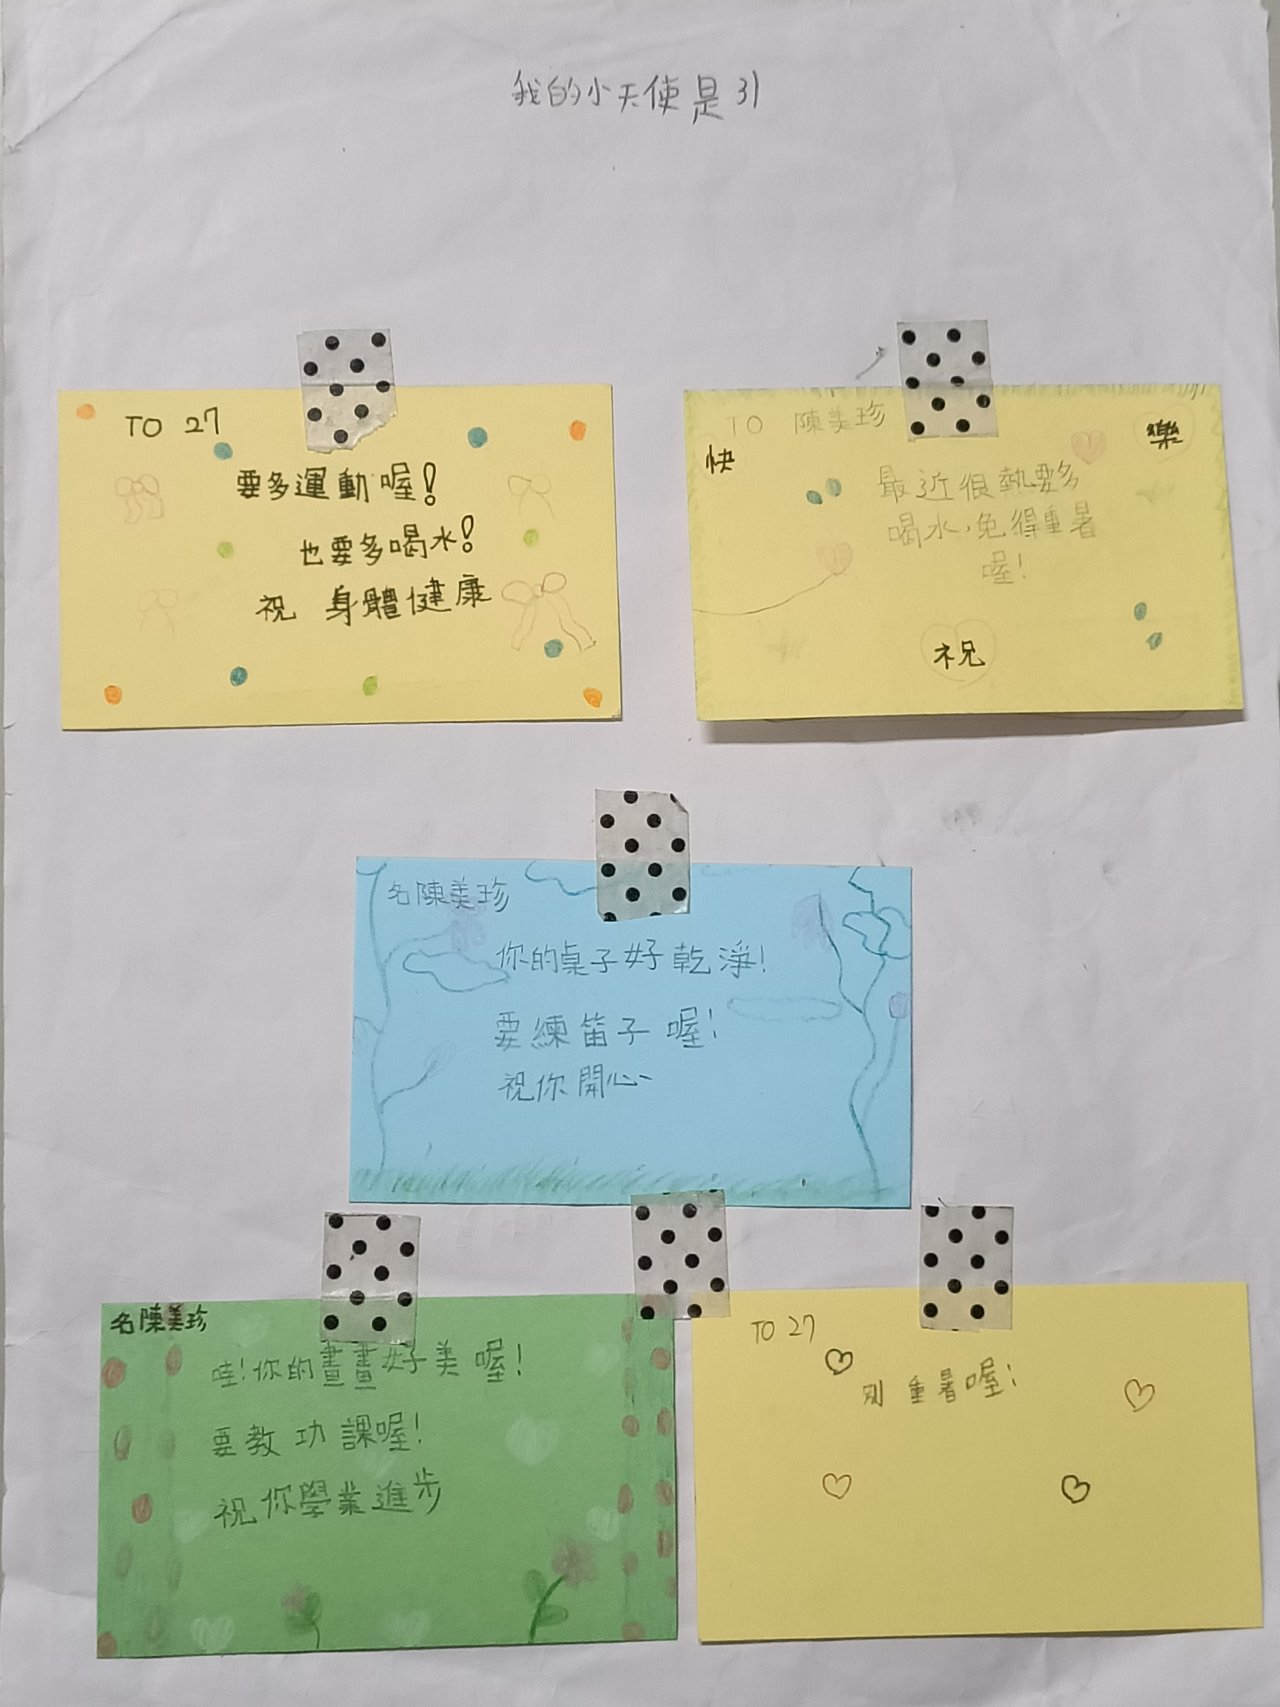 我的小天使是31
TO 27
要多運動喔!
也要多喝水!
祝 身體健康
TO 陳美珍
快
樂
最近很熱要多
喝水,免得重暑
喔!
祝
名陳美珍
你的桌子好乾淨!
要練笛子喔!
祝你開心~
名陳美珍
哇!你的畫畫好美喔!
要教功課喔!
祝你學業進步
TO 27
別重暑喔!